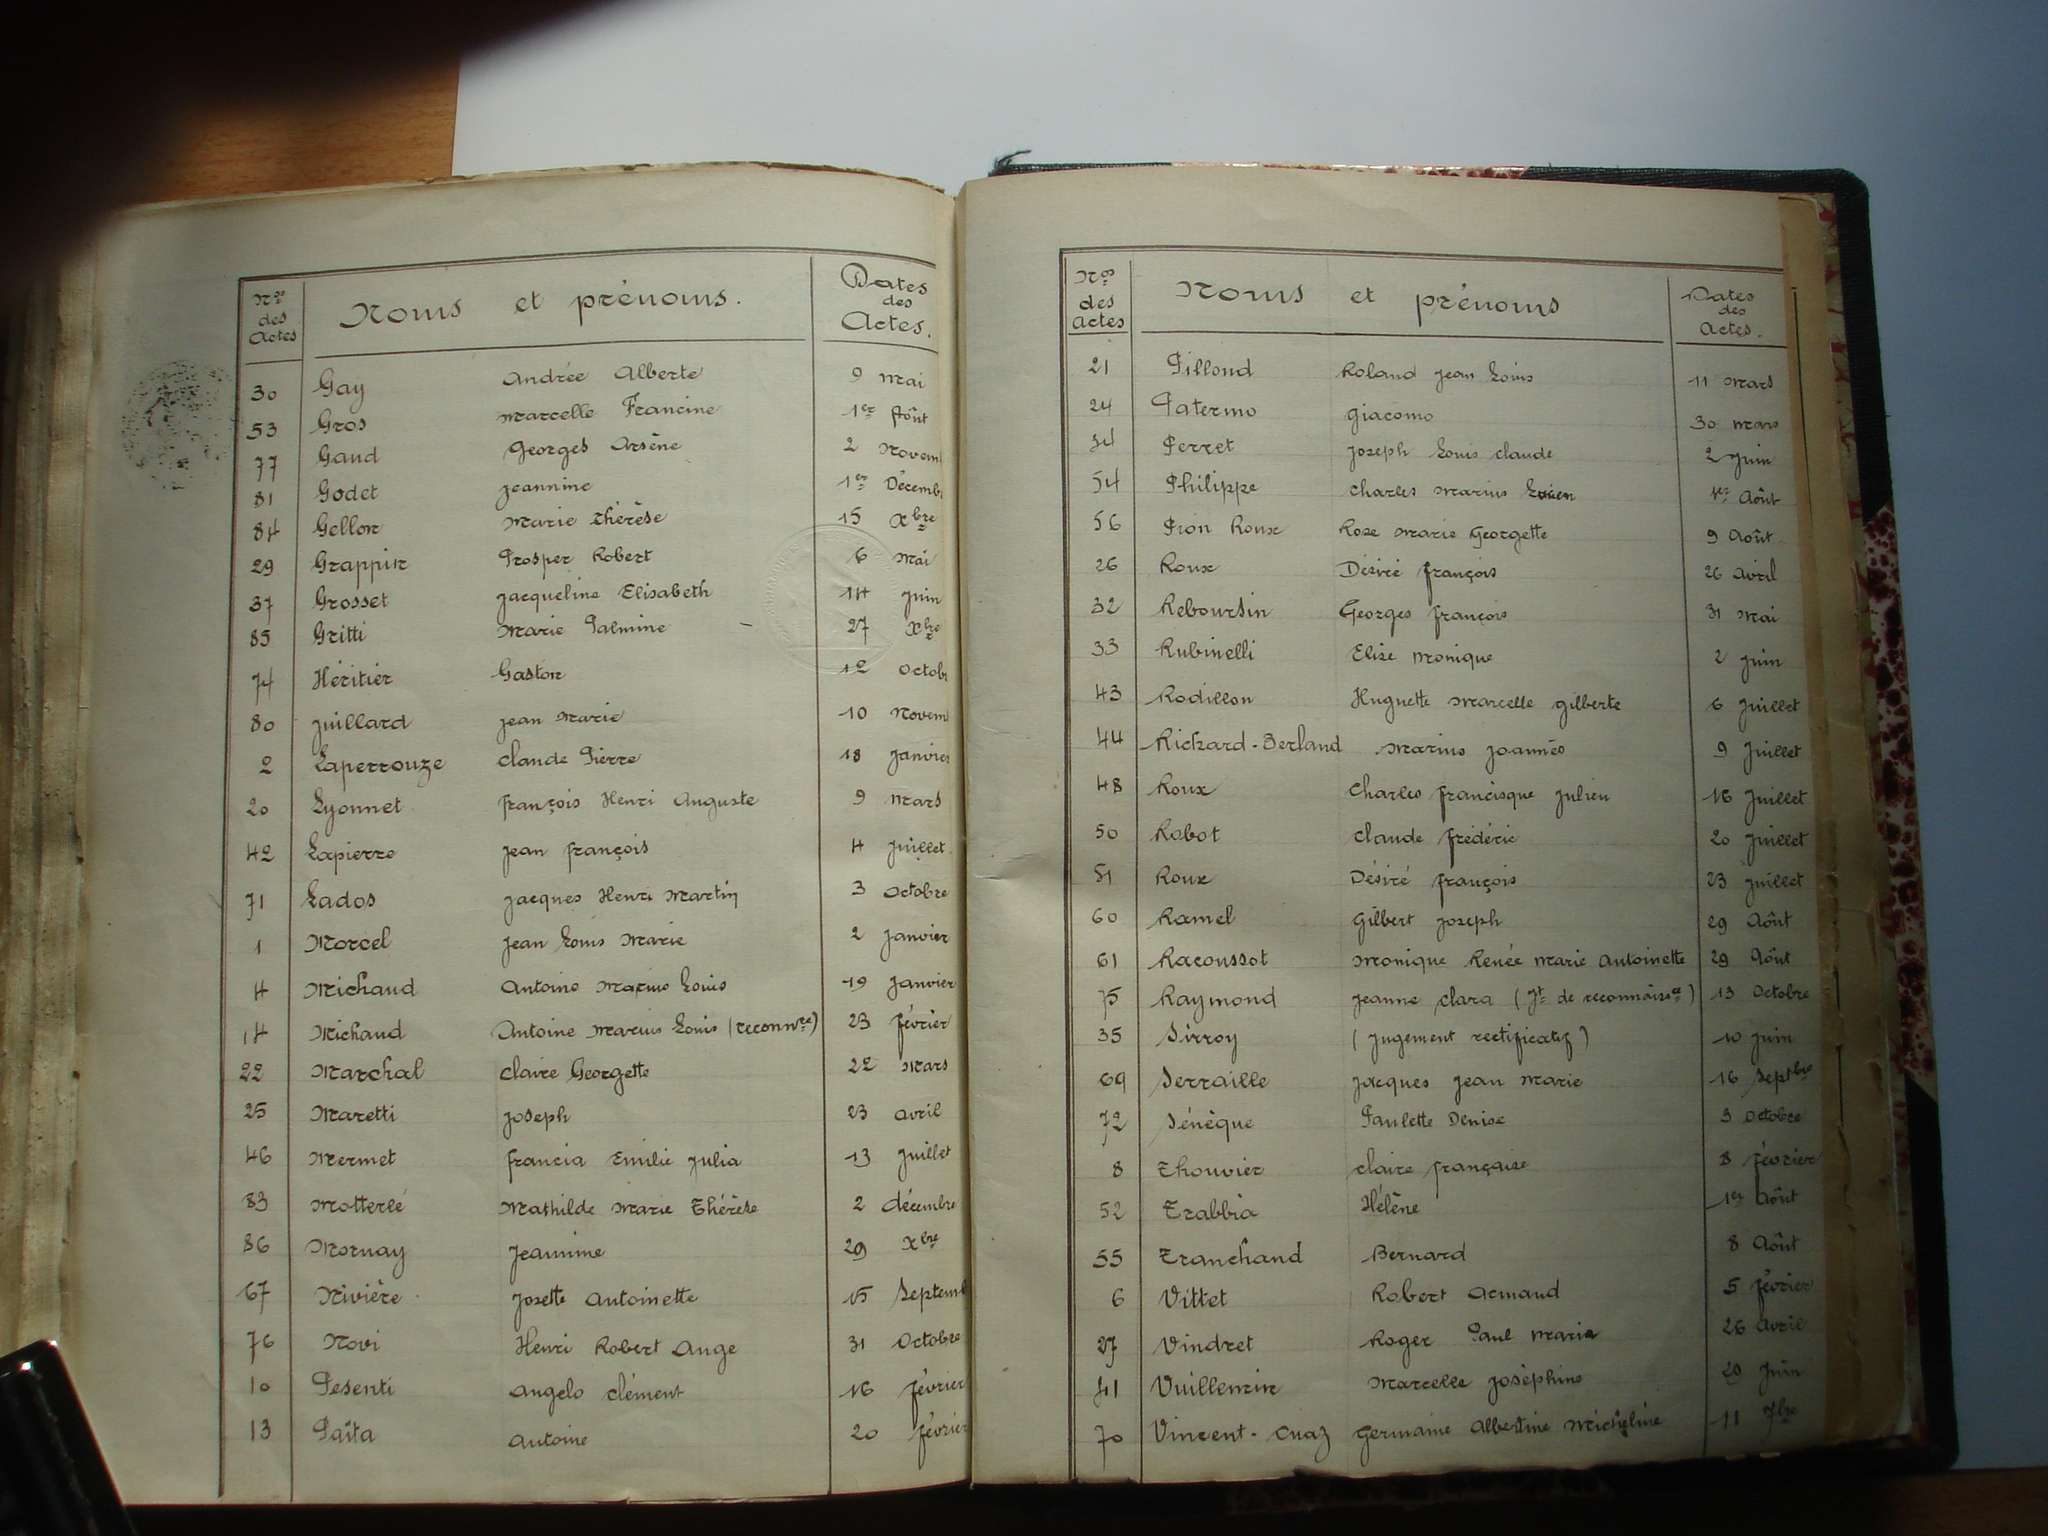 Nos des Actes Noms et prénoms. Dates des Actes.
30 Gay Andrée Alberte 9 Mai
53 Gros Marcelle Francine 1er Août
77 Gaud Georges Arsène 2 Novem
81 Godet Jeannine 1er Décemb
84 Gellon Marie Thérèse 15 Xbre
29 Grappin Prosper Robert 6 Mai
37 Grosset Jacqueline Elisabeth 14 Juin
85 Gritti Marie Palmine 27 Xbre
74 Héritier Gaston 12 Octob
80 Juillard Jean Marie 10 Novem
2 Laperrouze Claude Pierre 18 Janvier
20 Lyonnet François Henri Auguste 9 Mars
42 Lapierre Jean François 4 Juillet
71 Lados Jacques Henri Martin 3 Octobre
1 Morcel Jean Louis Marie 2 Janvier
4 Michaud Antoine Marius Louis 19 Janvier
14 Michaud Antoine Marius Louis (reconnce) 23 Février
22 Marchal Claire Georgette 22 Mars
25 Maretti Joseph 23 Avril
46 Mermet Francia Emilie Julia 13 Juillet
83 Motterlé Mathilde Marie Thérèse 2 décembre
86 Mornay Jeannine 29 Xbre
67 Nivière Josette Antoinette 15 Septemb
76 Novi Henri Robert Ange 31 Octobre
10 Pesenti Angelo Clément 16 Février
13 Païta Antoine 20 Février
Nos des Actes Noms et prénoms Dates des Actes.
21 Pilloud Roland Jean Louis 11 Mars
24 Patermo Giacomo 30 Mars
34 Perret Joseph Louis Claude 2 Juin
54 Philippe Charles Marius Lucien 1er Août
56 Pion Roux Rose Marie Georgette 9 Août
26 Roux Désiré François 26 Avril
32 Reboursin Georges François 31 Mai
33 Rubinelli Elise Monique 2 Juin
43 Rodillon Huguette Marcelle Gilberte 6 Juillet
44 Richard-Berland Marius Joannès 9 Juillet
48 Roux Charles Francisque Julien 16 Juillet
50 Robot Claude Frédéric 20 Juillet
51 Roux Désiré François 23 Juillet
60 Ramel Gilbert Joseph 29 Août
61 Racoussot Monique Renée Marie Antoinette 29 Août
75 Raymond Jeanne Clara (Jt de reconnaissce) 13 Octobre
35 Sirroy (Jugement rectificatif) 10 Juin
69 Serraille Jacques Jean Marie 16 Septbre
72 Sénèque Paulette Denise 3 Octobre
8 Thouvier Claire Française 8 Février
52 Trabbia Hélène 1er Août
55 Tranchand Bernard 8 Août
6 Vittet Robert Armand 5 Février
27 Vindret Roger Paul Marie 26 Avril
41 Vuillemin Marcelle Joséphine 29 Juin
70 Vincent-Cuaz Germaine Albertine Micheline 11 7bre